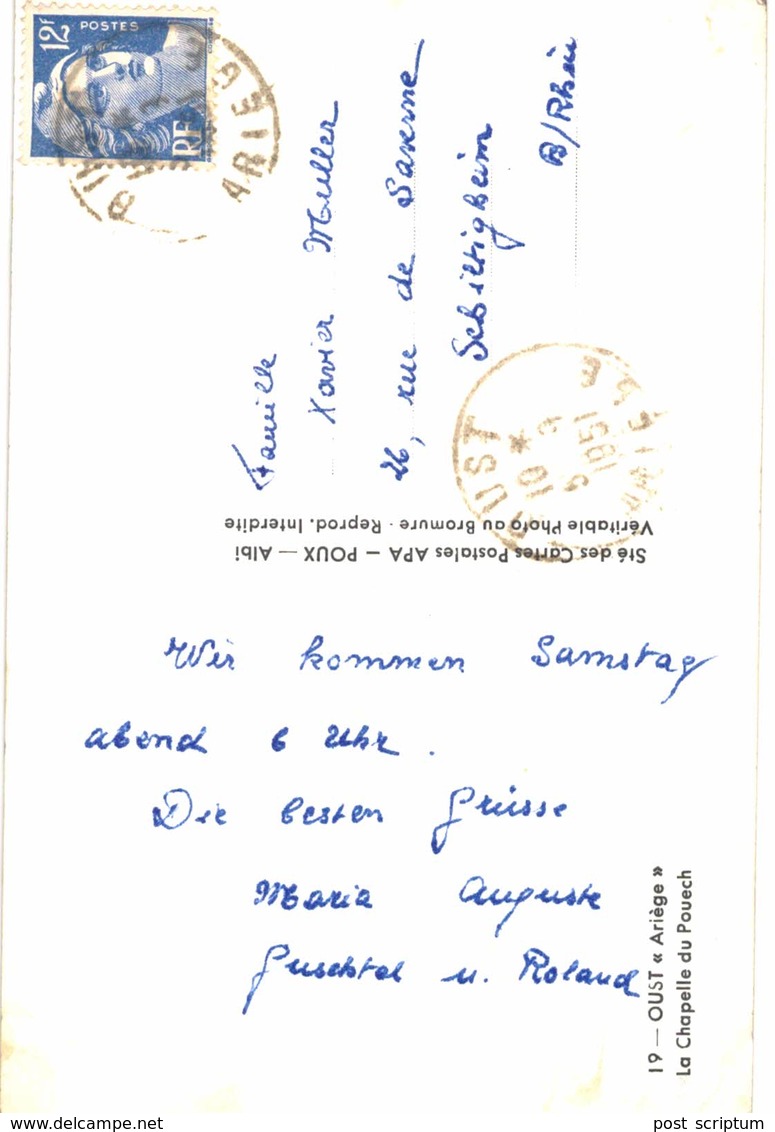 12F POSTES
RF
ARIEGE
Famille
Xavier Muller
26, rue de Saverne
Schiltigheim
B/Rhin
OUST
10 *
6 9
1951
ARIEGE
Véritable Photo au Bromure - Reprod. Interdite
Sté des Cartes Postales APA — POUX — Albi
Wir kommen Samstag
abend 6 Uhr.
Die besten Grüsse
Maria Auguste
Guschtel u. Roland
19 — OUST « Ariège »
La Chapelle du Pouech
post scriptum